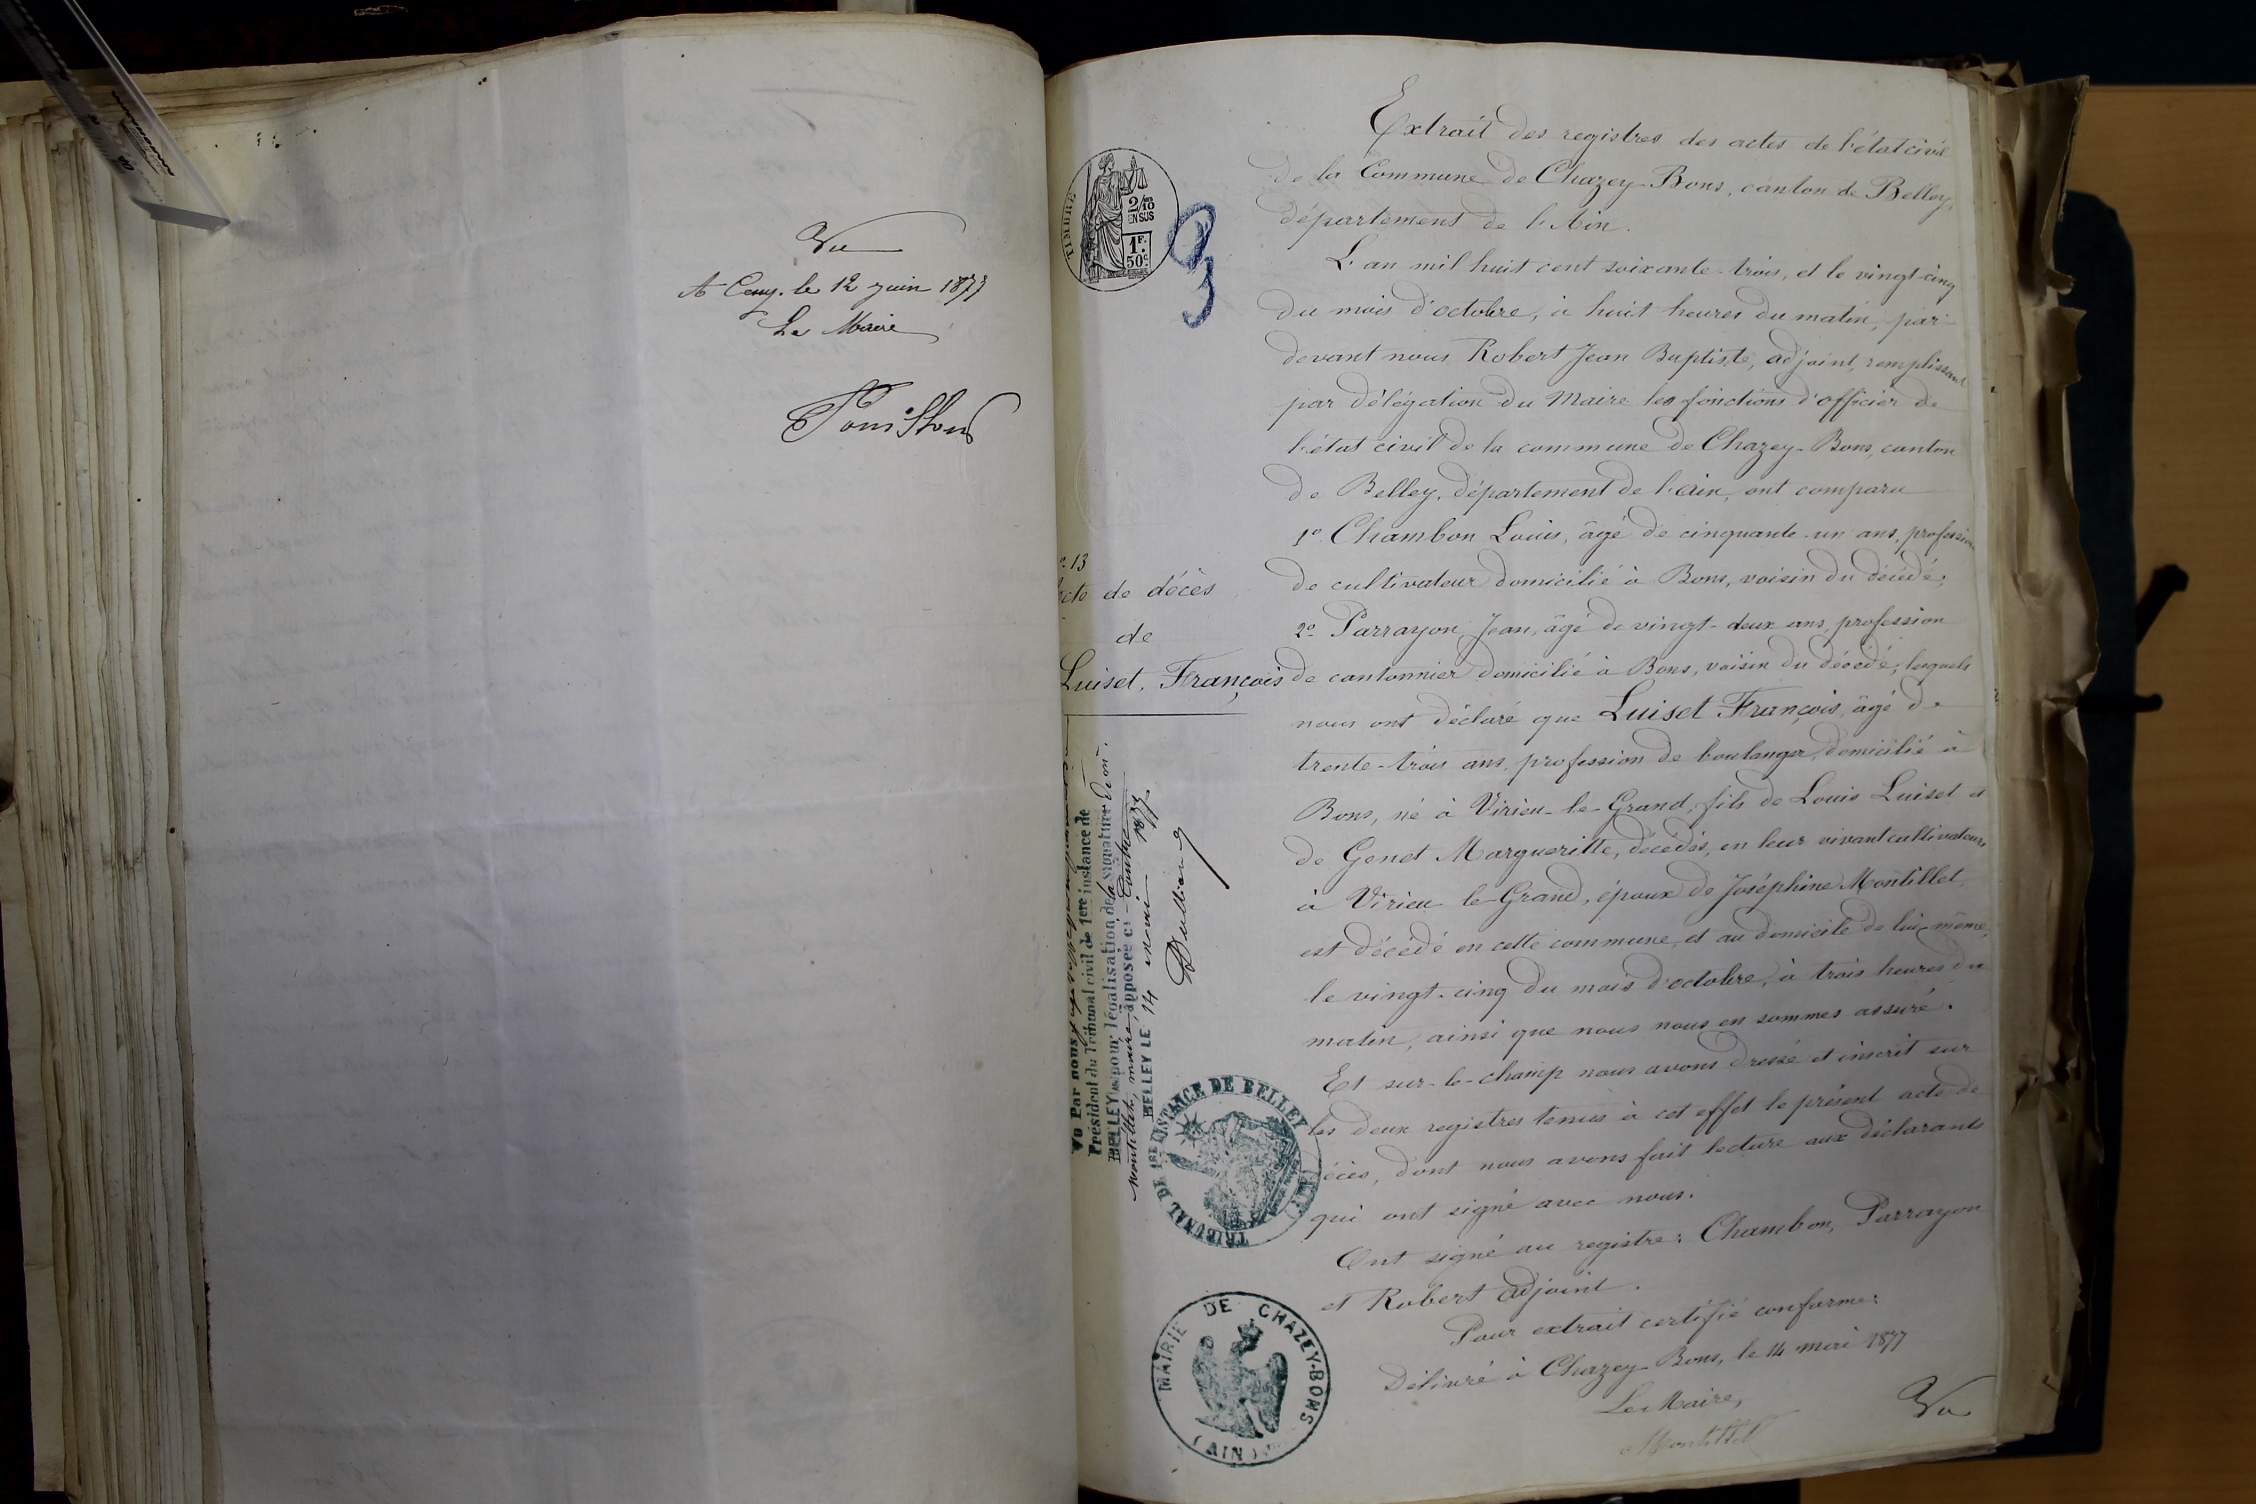 Vu
A Ceuz. le 12 juin 1877
Le Maire
TIMBRE
2/10 EN SUS
1F. 50c
3
Extrait des registres des actes de l'état civil
de la Commune de Chazey-Bons, canton de Belley,
département de l'Ain.
L'an mil huit cent soixante-trois, et le vingt-cinq
du mois d'octobre, à huit heures du matin, par-
devant nous Robert Jean Baptiste, adjoint, remplissant
par délégation du Maire les fonctions d'officier de
l'état civil de la commune de Chazey-Bons, canton
de Belley, département de l'Ain, ont comparu
1º Chambon Louis, âgé de cinquante-un ans, profession
de cultivateur domicilié à Bons, voisin du décédé;
2º Parrayon Jean, âgé de vingt-deux ans, profession
de cantonnier domicilié à Bons, voisin du décédé; lesquels
nous ont déclaré que Luiset François, âgé de
trente-trois ans, profession de boulanger, domicilié à
Bons, né à Virieu-le-Grand, fils de Louis Luiset et
de Genet Margueritte, décédés, en leur vivant cultivateurs
à Virieu-le-Grand, époux de Joséphine Montillet,
est décédé en cette commune, et au domicile de lui-même,
le vingt-cinq du mois d'octobre, à trois heures du
matin, ainsi que nous nous en sommes assuré.
Et sur-le-champ nous avons dressé et inscrit sur
les deux registres tenus à cet effet le présent acte de
décès, dont nous avons fait lecture aux déclarants
qui ont signé avec nous.
Ont signé au registre: Chambon, Parrayon
et Robert adjoint.
Pour extrait certifié conforme:
Délivré à Chazey-Bons, le 14 mai 1877
Le Maire,
Montillet
Vu
º 13
Acte de décès
de
Luiset, François
Vu Par nous
Président du Tribunal civil de 1ere instance de
BELLEY pour légalisation de la signature de m.
Montillet, maire, apposée ci-contre
BELLEY LE 14 mai 1877
TRIBUNAL DE 1ERE INSTANCE DE BELLEY (AIN)
MAIRIE DE CHAZEY-BONS (AIN)